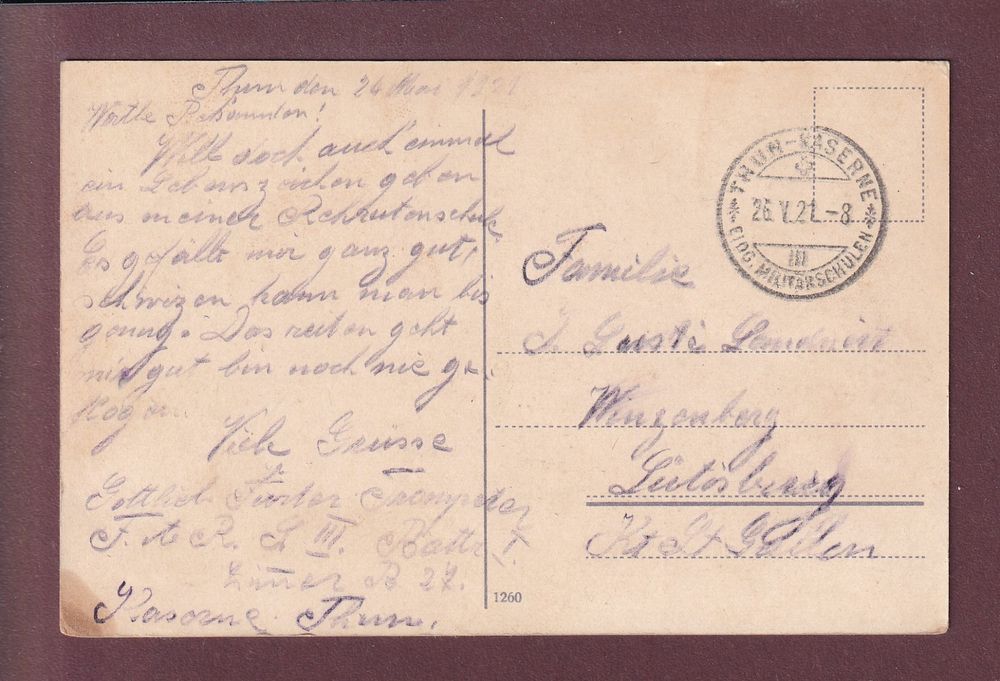 Thun den 26 Mai 1921
Werthe
Will doch auch einmal
ein Lebenszeichen geben
aus meiner Rekrutenschule.
Es gefällt mir ganz gut,
schwizen kann man bis
genug. Das reiten geht
mir gut bin noch nie ge-
flogen.
Viele Grüsse
Gottlieb Trompeter
F. A. R. S III. Battr I.
Zimer B 27.
Kaserne Thun.
THUN-KASERNE
26.V.21.-8
III
EIDG. MILITÄRSCHULEN
Familie
J. Gusti
Winzenberg
Lütisburg
Kt St Gallen
1260